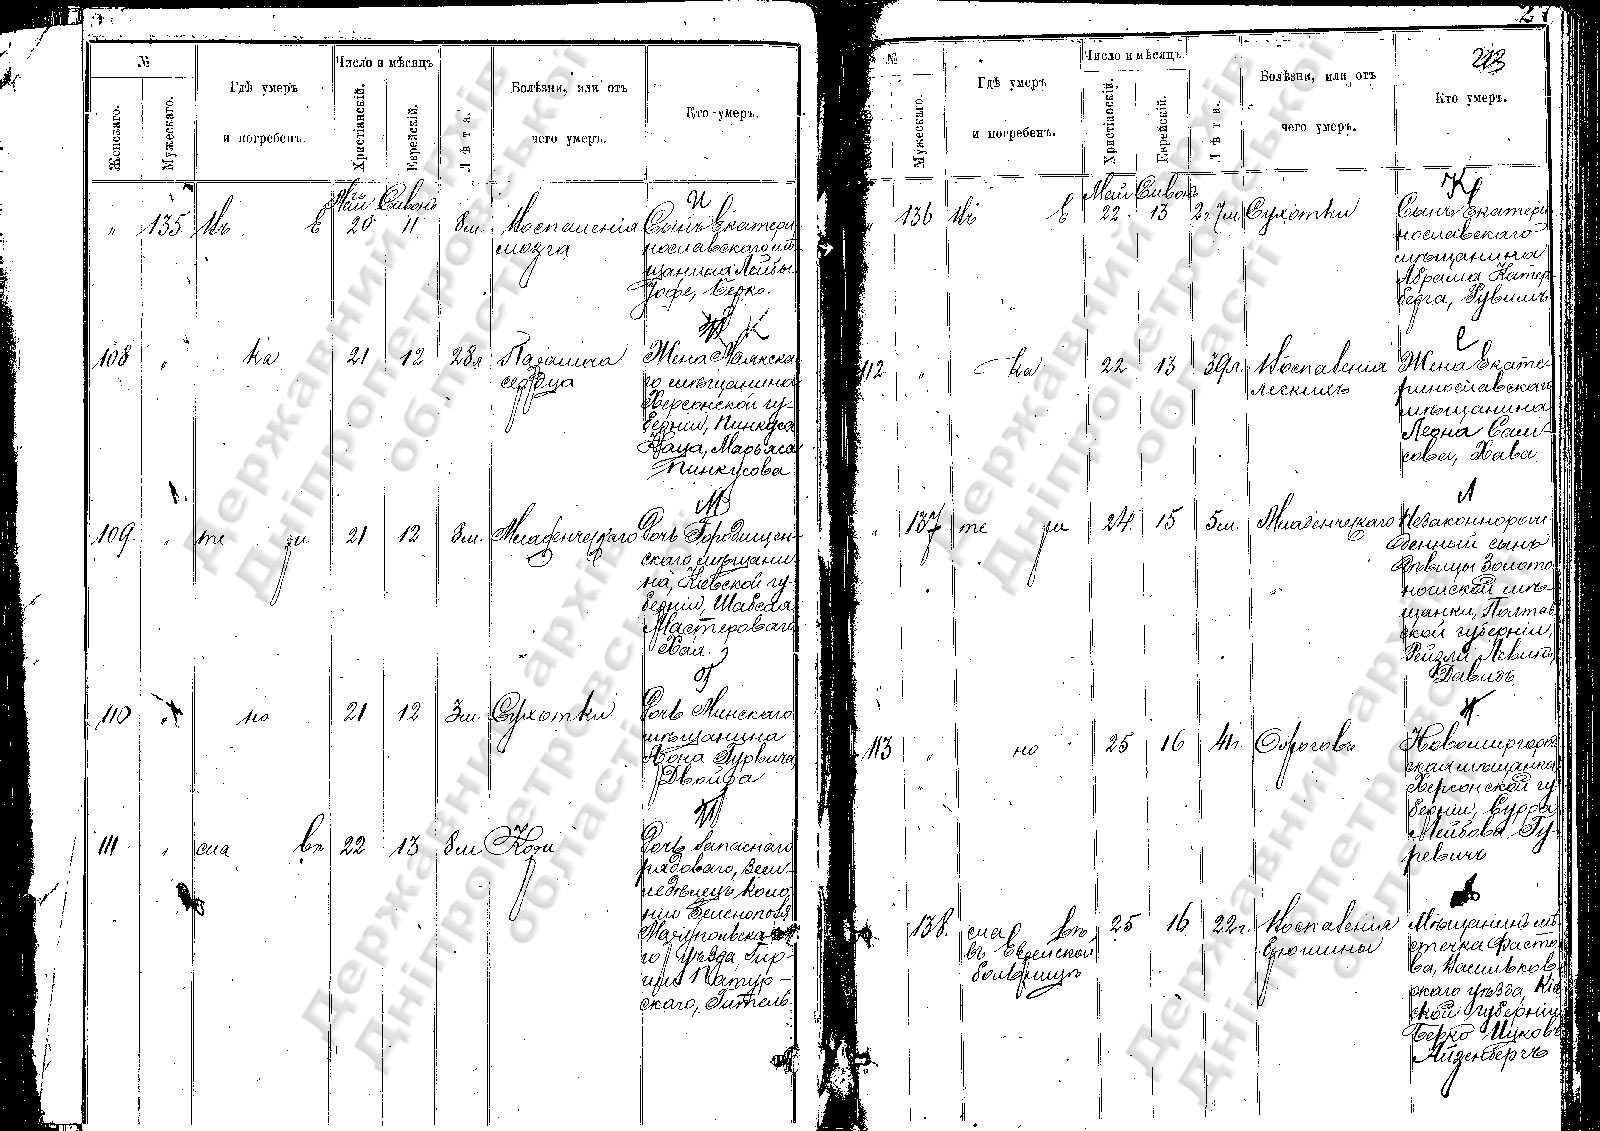 №
Женскаго.
Мужескаго.
Гдѣ умеръ
и погребенъ.
Число и мѣсяцъ
Христіанскій.
Еврейскій.
Лѣта.
Болѣзни, или отъ
чего умеръ.
Кто умеръ.
Май Сивонъ
И
„ 135 Въ Е 20 11 8м. Воспаленія
мозга
Сынъ Екатери
нославскаго мѣ
щанина Лейбы
Іофе, Берко.
К
108 „ ка 21 12 28л Паралича
сердца
Жена Маякска
го мѣщанина
Херсонской гу-
берніи, Пинкуса
Каца, Марьяса
Пинкусова
М
109. „ те ри 21 12 3м. Младенческаго
Дочь Городищен-
скаго мѣщани-
на, Кіевской гу-
берніи, Шабсая
Мастероваго
Хая.
Г
110 „ но 21 12 3м Сухотки
Дочь Минскаго
мѣщанина
Іона Гурвича,
Двейра
П
111 „ сла вѣ 22 13 8м Кори
Дочь запаснаго
рядоваго, зем-
ледѣлецъ коло
ніи Зеленополь
Маріупольска-
го уѣзда, Гир-
ша Патур-
скаго, Гитель.
213
№
Мужескаго.
Гдѣ умеръ
и погребенъ.
Число и мѣсяцъ
Христіанскій.
Еврейскій.
Лѣта.
Болѣзни, или отъ
чего умеръ.
Кто умеръ.
Май Сивонъ
К
„ 136 Въ Е 22 13 2г 7м Сухотки
Сынъ Екатери
нославскаго
мѣщанина
Абрама Катер-
берга, Рувимъ
С
112 „ ка 22 13 39л. Воспаленія
легкихъ
Жена Екате-
ринославскаго
мѣщанина
Леона Сам-
сова, Хава
Л
„ 137 те ри 24 15 5м. Младенческаго
Незаконнорож
денный сынъ
дѣвицы Золото
ношской мѣ-
щанки, Полтав
ской губерніи,
Рейзли Левитъ,
Давидъ
Г
113 „ но 25 16 41г. Ожоговъ
Новомиргород
ская мѣщанка
Херсонской гу-
берніи, Сурра
Лейбова Гу-
ревичъ
А
138. сла вѣ
въ Еврейской
больницѣ
25 16 22г. Воспаленія
брюшины
Мѣщанинъ мѣ
стечка Фасто
ва, Васильков-
скаго уѣзда, Кіев
ской губерніи
Берко Ицковъ
Айзенбергъ
Державний архів
Дніпропетровської
області